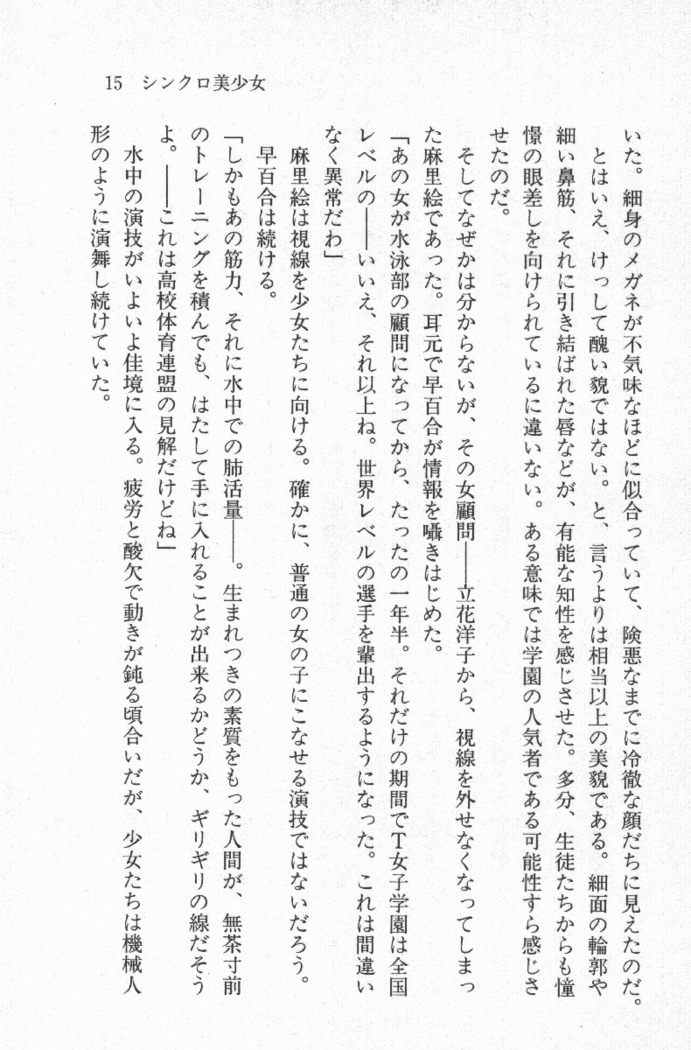 15 シンクロ美少女
いた。細身のメガネが不気味なほどに似合っていて、険悪なまでに冷徹な顔だちに見えたのだ。
とはいえ、けっして醜い貌ではない。と、言うよりは相当以上の美貌である。細面の輪郭や
細い鼻筋、それに引き結ばれた唇などが、有能な知性を感じさせた。多分、生徒たちからも憧
憬の眼差しを向けられているに違いない。ある意味では学園の人気者である可能性すら感じさ
せたのだ。
そしてなぜかは分からないが、その女顧問――立花洋子から、視線を外せなくなってしまっ
た麻里絵であった。耳元で早百合が情報を囁きはじめた。
「あの女が水泳部の顧問になってから、たったの一年半。それだけの期間でT女子学園は全国
レベルの――いいえ、それ以上ね。世界レベルの選手を輩出するようになった。これは間違い
なく異常だわ」
麻里絵は視線を少女たちに向ける。確かに、普通の女の子にこなせる演技ではないだろう。
早百合は続ける。
「しかもあの筋力、それに水中での肺活量――。生まれつきの素質をもった人間が、無茶寸前
のトレーニングを積んでも、はたして手に入れることが出来るかどうか、ギリギリの線だそう
よ。――これは高校体育連盟の見解だけどね」
水中の演技がいよいよ佳境に入る。疲労と酸欠で動きが鈍る頃合いだが、少女たちは機械人
形のように演舞し続けていた。